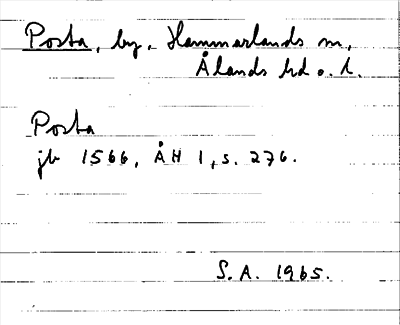 Posta, by, Hammarlands sn,
Ålands hd o. l.
Posta
jb 1566, ÅH 1, s. 276.
S. A. 1965.